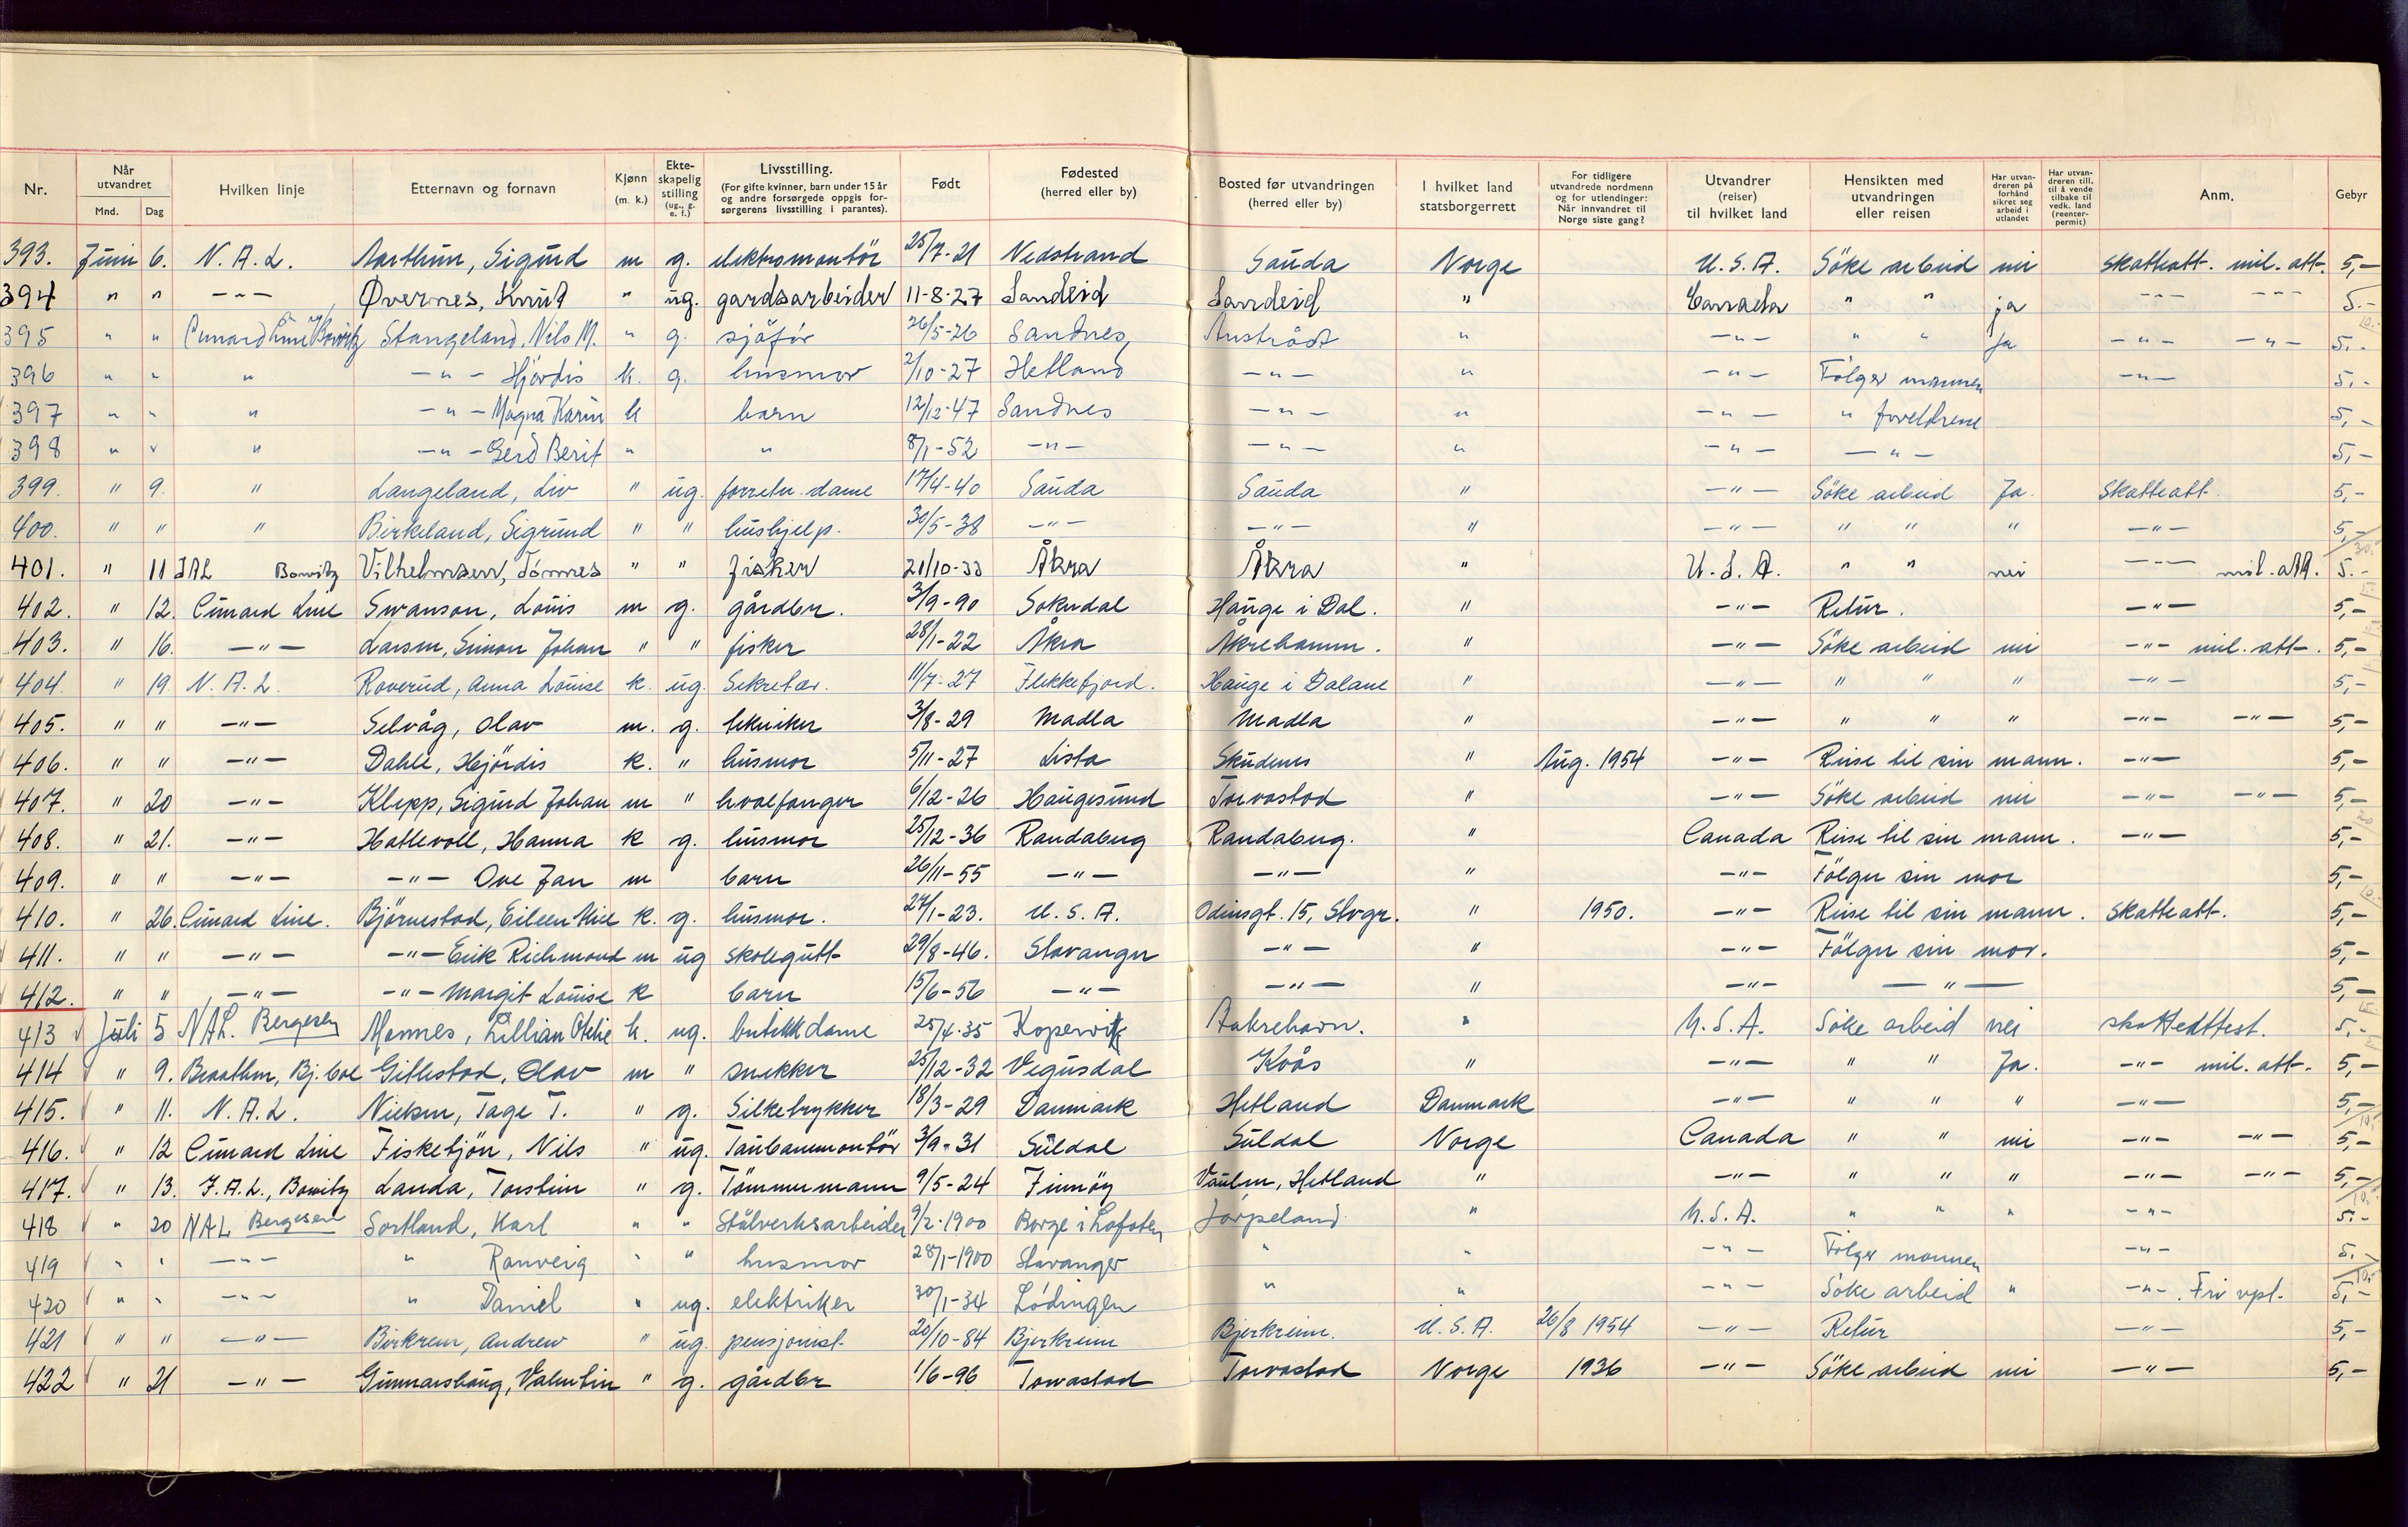 Nr. Når utvandret Mnd. Dag Hvilken linje Etternavn og fornavn Kjønn (m. k.) Ekteskapelig stilling (ug., g. e. f.) Livsstilling. (For gifte kvinner, barn under 15 år og andre forsørgede oppgis forsørgerens livsstilling i parantes). Født Fødested (herred eller by) Bosted før utvandringen (herred eller by) I hvilket land statsborgerrett For tidligere utvandrede nordmenn og for utlendinger: Når innvandret til Norge siste gang? Utvandrer (reiser) til hvilket land Hensikten med utvandringen eller reisen Har utvandreren på forhånd sikret seg arbeid i utlandet Har utvandreren till. til å vende tilbake til vedk. land (reenterpermit) Anm. Gebyr
393. Juni 6. N. A. L. Aarthun, Sigurd m g. elektromontör 25/7-21 Nedstrand Sauda Norge U.S.A. Söke arbeid nei skatteatt. mil. att. 5,-
394 " " -"- Øvernes, Knut " ug. gardsarbeider 11-8-27 Sandeid Sandeid " Canada " " ja -"- -"- 5.-
395 " " Cunard Line Bowitz Stangeland, Nils M. " g. sjåfør 26/5-26 Sandnes Austrått " -"- " " Ja -"- -"- 5.-
396 " " " -"- Hjördis k. g. husmor 2/10-27 Hetland -"- " -"- Følger mannen -"- 5.-
397 " " " -"- Magna Karin k barn 12/12-47 Sandnes -"- " -"- " foreldrene 5,-
398 " " " -"- Gerd Berit " " 8/1-52 -"- -"- " -"- -"- 5,-
399. " 9. " Langeland, Liv " ug. forretn. dame 17/4-40 Sauda Sauda " -"- Söke arbeid Ja. Skatteatt. 5,-
400. " " " Birkeland, Sigrund " " hushjelp. 30/5-38 -"- -"- " -"- " " " -"- 5,-
401. " 11 JAL Bowitz Vilhelmsen, Tönnes " " fisker 21/10-33 Åkra Åkra " U.S.A. " " nei -"- mil. att. 5.-
402. " 12. Cunard Line Swanson, Louis m g. gårdbr. 3/9-90 Sokndal Hauge i Dal. " -"- Retur. -"- 5,-
403. " 16. -"- Larsen, Simon Johan " " fisker 28/1-22 Åkra Åkrehamn. " -"- Söke arbeid nei -"- mil. att. 5,-
404. " 19. N. A. L. Roverud, Anna Louise k. ug. Sekretær. 11/7-27 Flekkefjord. Hauge i Dalane " -"- " " " -"- 5,-
405. " " -"- Selvåg, Olav m. g. tekniker 3/8-29 Madla Madla " -"- " " " -"- -"- 5,-
406. " " -"- Dahle, Hjördis k. " husmor 5/11-27 Lista Skudenes " Aug. 1954 -"- Reise til sin mann. -"- 5,-
407. " 20 -"- Klepp, Sigurd Johan m " hvalfanger 6/12-26 Haugesund Torvastad " -"- Söke arbeid nei -"- -"- 5,-
408. " 21. -"- Hatlevoll, Hanna k g. husmor 25/12-36 Randaberg Randaberg. " Canada Reise til sin mann. -"- 5,-
409. " " -"- -"- Ove Jan m barn 26/11-55 -"- -"- " -"- Fölger sin mor 5,-
410. " 26. Cunard Line. Björnestad, Eileen Alice k. g. husmor. 27/1-23. U.S.A. Odinsgt. 15, Stvgr. " 1950. -"- Reise til sin mann. Skatteatt. 5,-
411. " " -"- -"- Erik Richmond m ug skolegutt 29/8-46. Stavanger -"- " -"- Fölger sin mor. 5,-
412. " " -"- -"- Margit Louise k barn 15/6-56 -"- -"- " -"- -"- 5,-
413 Juli 5 NAL. Bergesen Mannes, Lillian Otelie k. ug. butikkdame 25/4-35 Kopervik Aakrehavn. " U.S.A. Söke arbeid nei skatteattest. 5.-
414 " 9. Braathen, Bj. Coe Gitlestad, Olav m " snekker 25/12-32 Vegusdal Kvås " -"- " " Ja. -"- mil. att. 5,-
415. " 11. N. A. L. Nielsen, Tage T. " g. Silketrykker 18/3-29 Danmark Hetland Danmark -"- " " " -"- 5,-
416. " 12 Cunard Line Fisketjön, Nils " ug. Taubanemontör 3/9-31 Suldal Suldal Norge Canada " " nei -"- -"- 5,-
417. " 13. J.A.L., Bowitz Landa, Torstein " g. Tömmermann 9/5-24 Finnöy Vaulen, Hetland " -"- " " " -"- -"- 5,-
418 " 20 NAL Bergesen Sortland, Karl " " Stålverksarbeider 9/2-1900 Borge i Lofoten Jørpeland " U.S.A. " " " -"- 5.-
419 " " -"- " Ranveig " " husmor 28/1-1900 Stavanger " " -"- Følger mannen -"- 5.-
420 " " -"- " Daniel " ug. elektriker 30/1-34 Lødingen " " -"- Söke arbeid " -"-. Fri vpl. 5,-
421 " " -"- Birkrem, Andrew " ug. pensjonist 20/10-84 Bjerkreim Bjerkreim. U.S.A. 26/8 1954 -"- Retur -"- 5,-
422 " 21 -"- Gunnarshaug, Valentin " g. gårdbr 1/6-96 Torvastad Torvastad Norge 1936 -"- Söke arbeid nei -"- 5,-